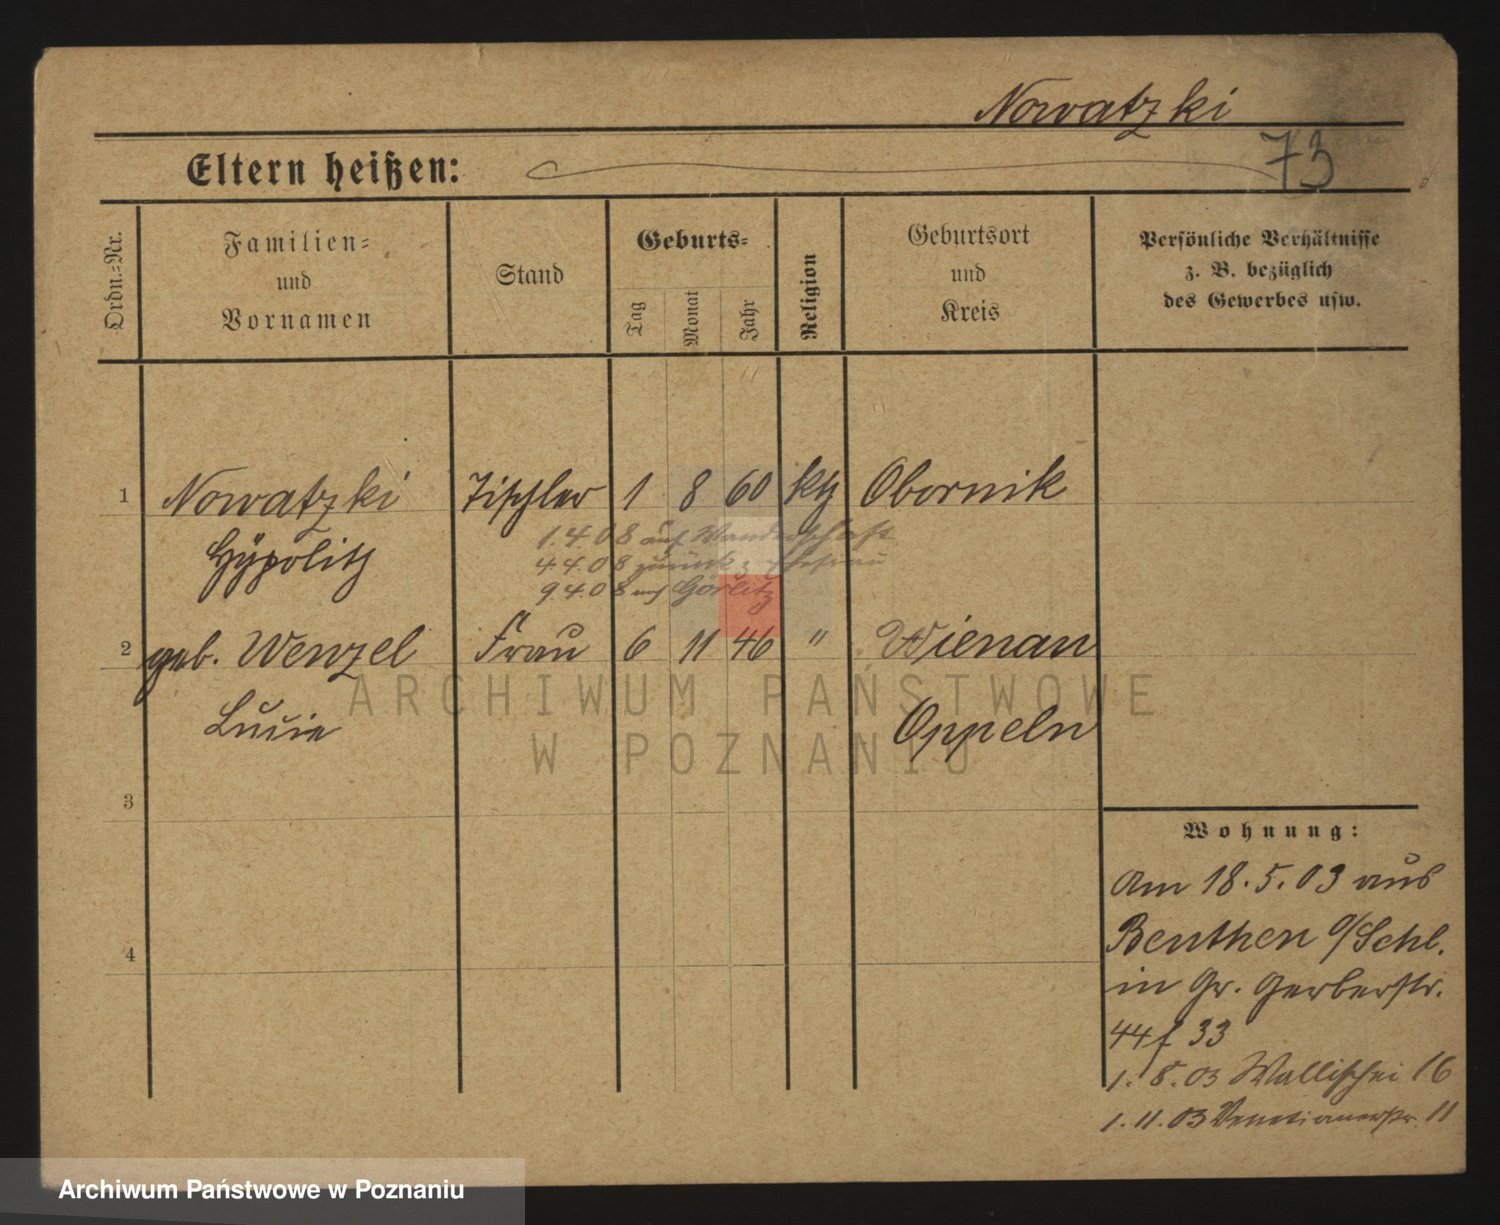 Nowatzki
Eltern heißen:
73
Ordn.=Nr.
Familien=
und
Vornamen
Stand
Geburts=
Tag
Monat
Jahr
Religion
Geburtsort
und
Kreis
Persönliche Verhältnisse
z. B. bezüglich
des Gewerbes usw.
1 Nowatzki Tischler 1 8 60 kth Obornik
Hÿpolith
1.4.08 auf Wanderschaft
4.4.08 zurück z.
9.4.08 Görlitz
2 geb. Wenzel Frau 6 11 46 " Wienau
Luzie Oppeln
3
4
Wohnung:
Am 18.5.03 aus
Beuthen o/Schl.
in Gr. Gerberstr.
44 f 33
1.8.03 Wallischei 16
1.11.03 Venetianerstr. 11
ARCHIWUM PAŃSTWOWE
W POZNANIU
Archiwum Państwowe w Poznaniu